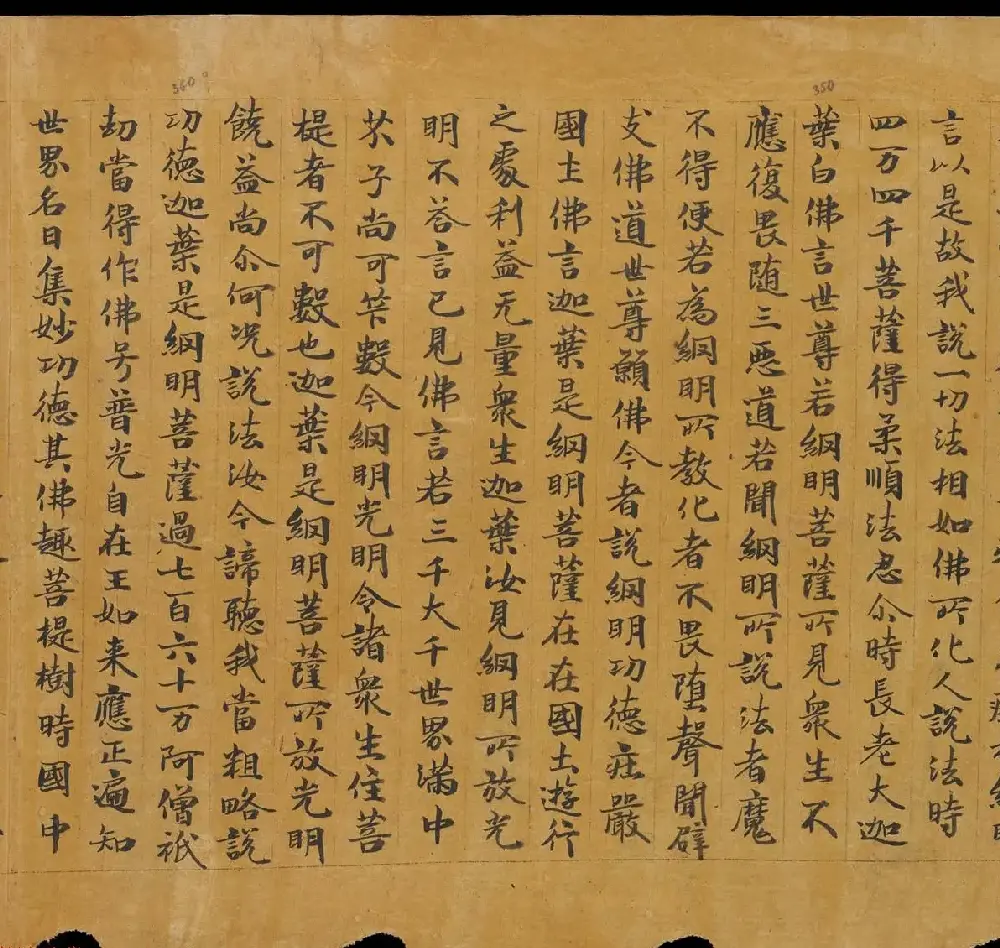 言以是故我說一切法相如佛所化人說法時
四万四千菩薩得柔順法忍尒時長老大迦
葉白佛言世尊若網明菩薩所見衆生不
應復畏随三惡道若聞網明所說法者魔
不得便若為網明所教化者不畏堕聲聞辟
支佛道世尊願佛今者說網明功德庄嚴
國土佛言迦葉是網明菩薩在在國土遊行
之處利益无量衆生迦葉汝見網明所放光
明不荅言已見佛言若三千大千世界滿中
芥子尚可筭數今網明光明令諸衆生住菩
提者不可數也迦葉是網明菩薩所放光明
饒益尚尒何况說法汝今諦聽我當粗略說
功德迦葉是網明菩薩過七百六十万阿僧祇
劫當得作佛号普光自在王如来應正遍知
世界名曰集妙功德其佛趣菩提樹時國中
350
360